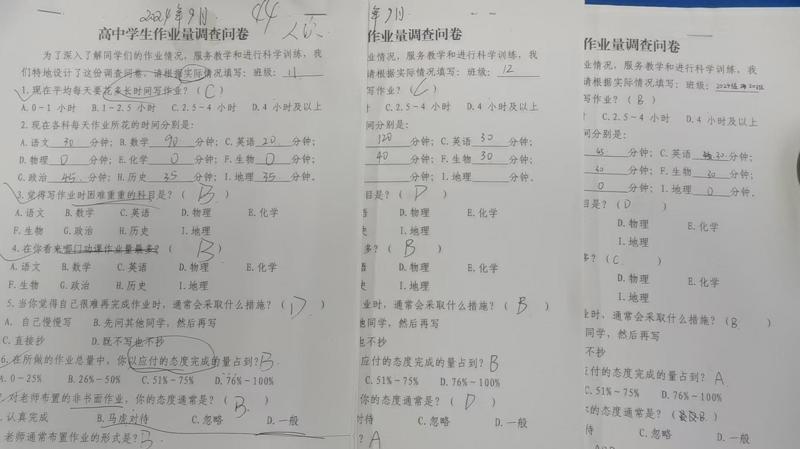 2024年9月 44
高中学生作业量调查问卷
为了深入了解同学们的作业情况，服务教学和进行科学训练，我
们特地设计了这份调查问卷，请根据实际情况填写：班级：11
1.现在平均每天要花来长时间写作业？（C）
A.0-1 小时 B.1-2.5 小时 C.2.5-4 小时 D.4 小时及以上
2.现在各科每天作业所花的时间分别是：
A.语文 30 分钟；B.数学 90 分钟；C.英语 20 分钟；
D.物理 0 分钟；E.化学 0 分钟；F.生物 0 分钟；
G.政治 45 分钟；H.历史 35 分钟；I.地理 35 分钟。
3.觉得写作业时困难重重的科目是？（B）
A.语文 B.数学 C.英语 D.物理 E.化学
F.生物 G.政治 H.历史 I.地理
4.在你看来哪门功课作业量最多？（B）
A.语文 B.数学 C.英语 D.物理 E.化学
F.生物 G.政治 H.历史 I.地理
5.当你觉得自己很难再完成作业时，通常会采取什么措施？（D）
A. 自己慢慢写 B.先问其他同学，然后再写
C.直接抄 D.既不写也不抄
6.在所做的作业总量中，你以应付的态度完成的量占到？B
A.0-25% B.26%-50% C.51%~75% D.76%~100%
对老师布置的非书面作业，你的态度通常是？（B）
认真完成 B.马虎对待 C.忽略 D.一般
老师通常布置作业的形式是？B
年9月
作业量调查问卷
业情况，服务教学和进行科学训练，我
请根据实际情况填写：班级：12
写作业？（C）
C.2.5-4 小时 D.4 小时及以上
间分别是：
120 分钟；C.英语 30 分钟；
40 分钟；F.生物 30 分钟；
分钟；I.地理 分钟。
目是？（D）
D.物理 E.化学
I.地理
多？（B）
D.物理 E.化学
I.地理
业时，通常会采取什么措施？（B）
他同学，然后再写
也不抄
应付的态度完成的量占到？B
C.51%~75% D.76%~100%
你的态度通常是？（D）
对待 C.忽略 D.一般
？A
作业量调查问卷
业情况，服务教学和进行科学训练，我
请根据实际情况填写：班级：
写作业？（B）
C.2.5-4 小时 D.4 小时及以上
间分别是：
45 分钟；C.英语 30 分钟；
30 分钟；F.生物 30 分钟；
0 分钟；I.地理 0 分钟。
是？（D）
D.物理 E.化学
I.地理
？（C）
D.物理 E.化学
I.地理
时，通常会采取什么措施？（B
同学，然后再写
不抄
付的态度完成的量占到？A
C.51%~75% D.76%~100%
的态度通常是？（B）
待 C.忽略 D.一般